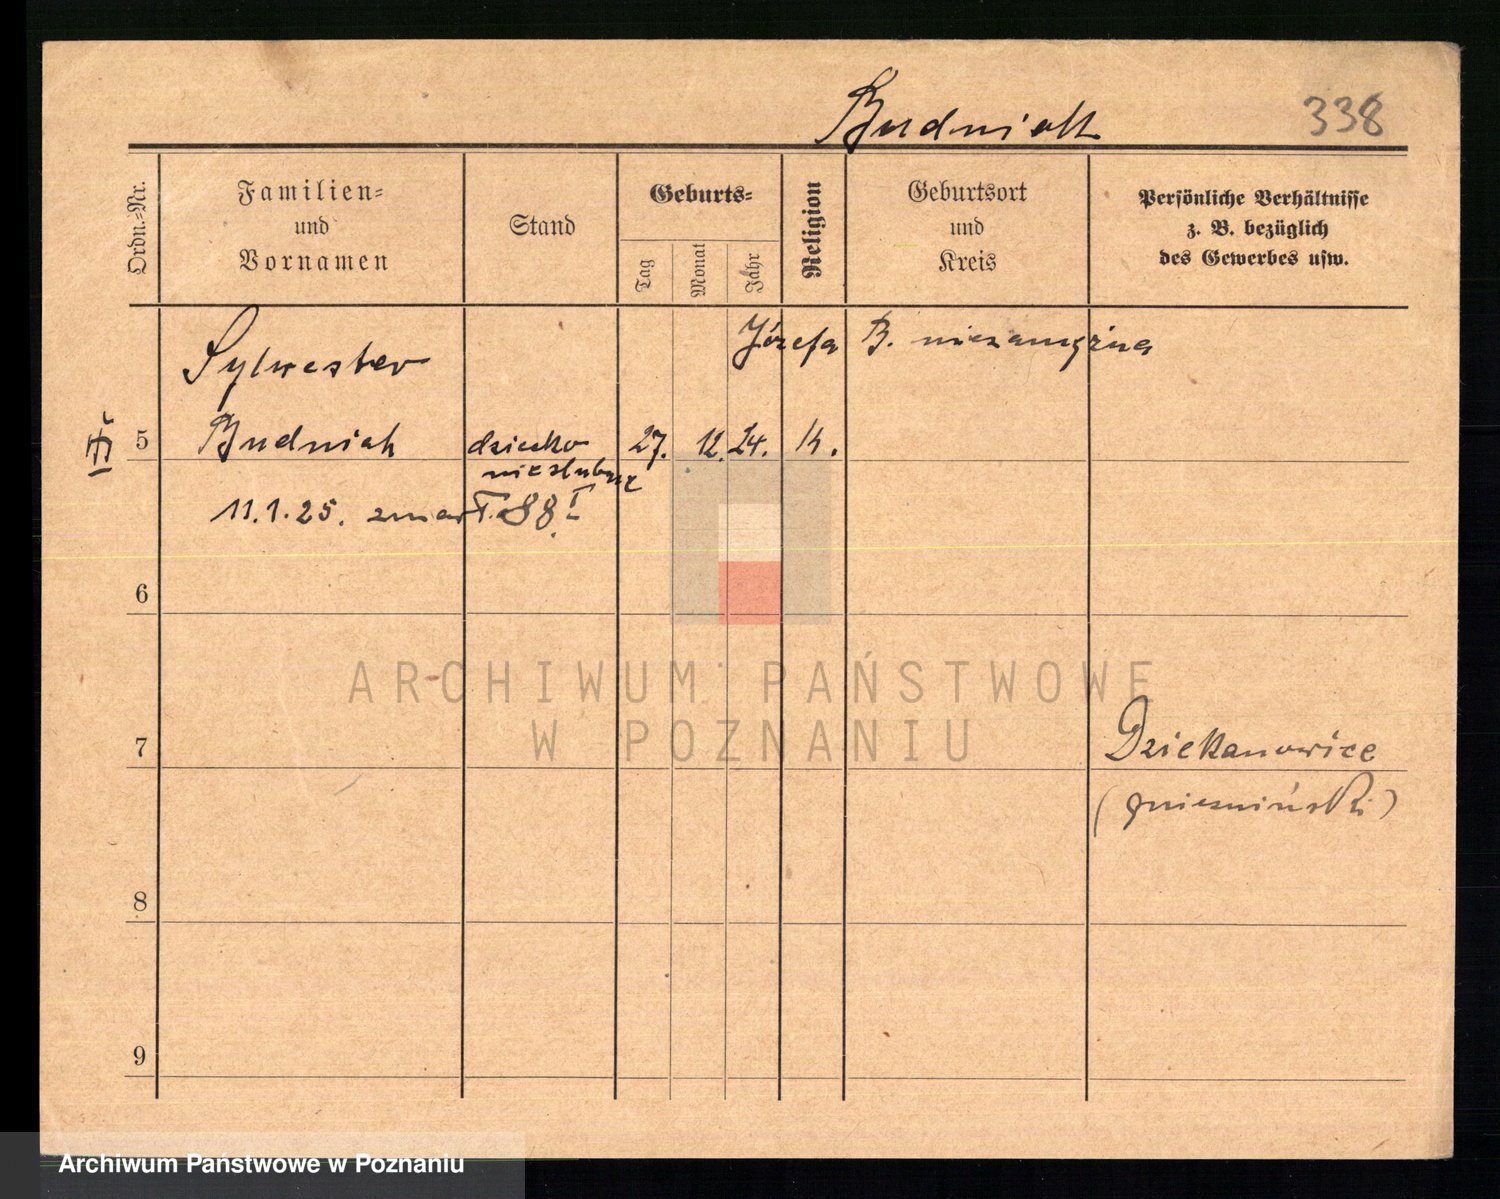 Budniak 338
Ordn.-Nr.
Familien-
und
Vornamen
Stand
Geburts-
Tag
Monat
Jahr
Religion
Geburtsort
und
Kreis
Persönliche Verhältnisse
z. B. bezüglich
des Gewerbes usw.
Józefa B. niezamężna
Sylwester
5 Budniak dziecko 27. 12. 24. k.
nieślubne
11.1.25. zmarł. 88 I
6
ARCHIWUM PAŃSTWOWE
W POZNANIU
7 Dziekanowice
(gnieźniński)
8
9
Archiwum Państwowe w Poznaniu